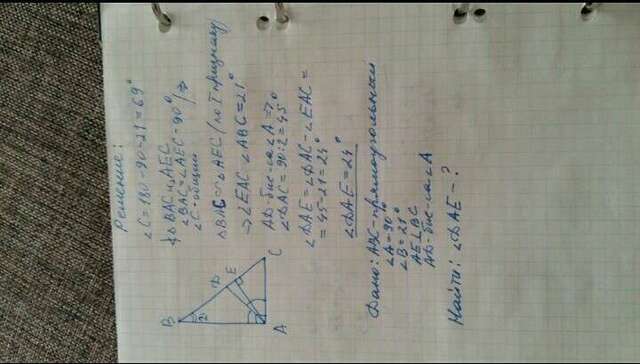 Решение:
∠C=180-90-21=69°
∠BAC=∠AEC=90°
∠C-общий
△BAC ~ △AEC (по I признаку)
→ ∠EAC=∠ABC=21°
AD-бис-са ∠A ⇒
∠DAC=90:2=45°
∠DAE=∠DAC-∠EAC=
=45-21=24°
∠DAE=24°
B
21
D
E
A
C
Дано: ABC-прямоугольный
∠A=90°
∠B=21°
AE⊥BC
AD-бис-са ∠A
Найти: ∠DAE-?